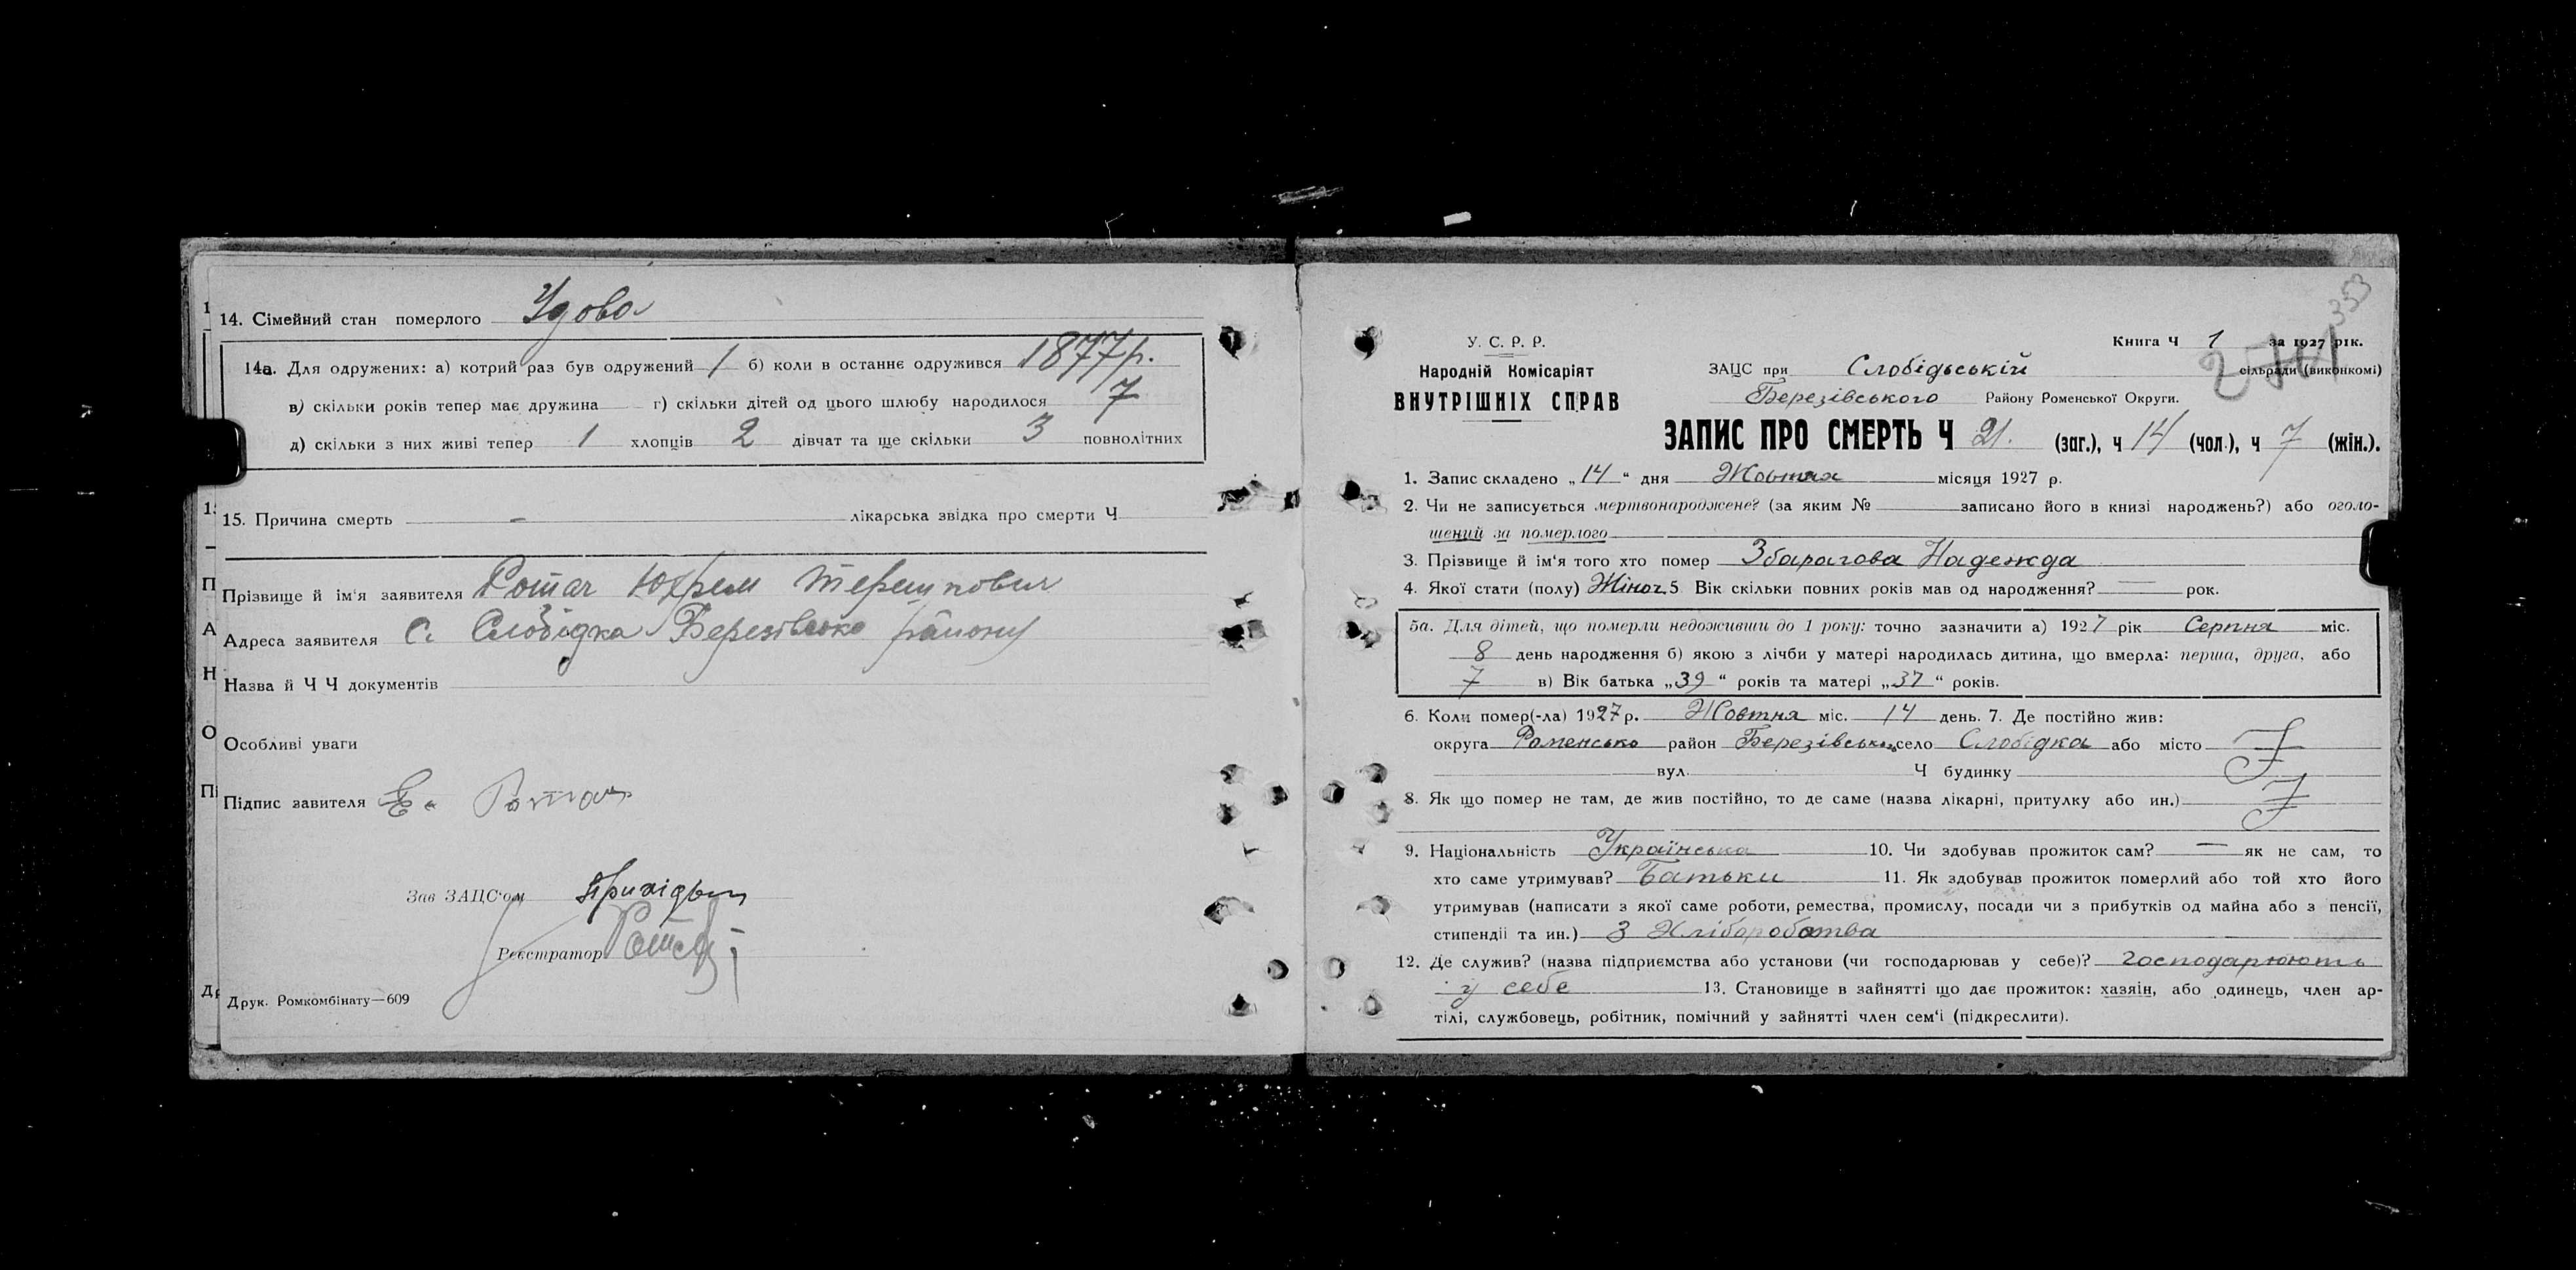 14. Сімейний стан померлого Удова
14а. Для одружених: а) котрий раз був одружений 1 б) коли в останнє одружився 1877 р.
в) скільки років тепер має дружина г) скільки дітей од цього шлюбу народилося 7
д) скільки з них живі тепер 1 хлопців 2 дівчат та ще скільки 3 повнолітних
15. Причина смерть - лікарська звідка про смерти Ч
Прізвище й ім'я заявителя Ротач Юхрем Терешкович
Адреса заявителя С. Слобідка Березівсько району
Назва й Ч Ч документів
Особливі уваги
Підпис завителя Е. Ротач
Зав ЗАЦС'ом
Реєстратор
Друк. Ромкомбінату—609
353
У. С. Р. Р.
Народній Комісаріят
ВНУТРІШНІХ СПРАВ
Книга Ч 1 за 1927 рік.
ЗАЦС при Слобідській сільради (виконкомі)
Березівського Району Роменської Округи.
ЗАПИС ПРО СМЕРТЬ Ч 21. (заг.), ч 14 (чол.), ч 7 (жін.).
1. Запис складено „14“ дня Жовтня місяця 1927 р.
2. Чи не записується мертвонароджене? (за яким № записано його в книзі народжень?) або оголо-
шений за померлого
3. Прізвище й ім'я того хто помер Збарагова Надежда
4. Якої стати (полу) Жіноч. 5 Вік скільки повних років мав од народження? — рок.
5а. Для дітей, що померли недоживши до 1 року: точно зазначити а) 1927 рік Серпня міс.
8 день народження б) якою з лічби у матері народилась дитина, що вмерла: перша, друга, або
7 в) Вік батька „39“ років та матері „37“ років.
6. Коли помер(-ла) 1927 р. Жовтня міс. 14 день. 7. Де постійно жив:
округа Роменсько район Березівськ. село Слобідка або місто
вул. Ч будинку
8. Як що помер не там, де жив постійно, то де саме (назва лікарні, притулку або ин.)
9. Національність Українська 10. Чи здобував прожиток сам? — як не сам, то
хто саме утримував? Батьки 11. Як здобував прожиток померлий або той хто його
утримував (написати з якої саме роботи, ремества, промислу, посади чи з прибутків од майна або з пенсії,
стипендії та ин.) З Хліборобства
12. Де служив? (назва підприємства або установи (чи господарював у себе)? господарюють
у себе 13. Становище в зайнятті що дає прожиток: хазяін, або одинець, член ар-
тілі, службовець, робітник, помічний у зайнятті член сем'і (підкреслити).